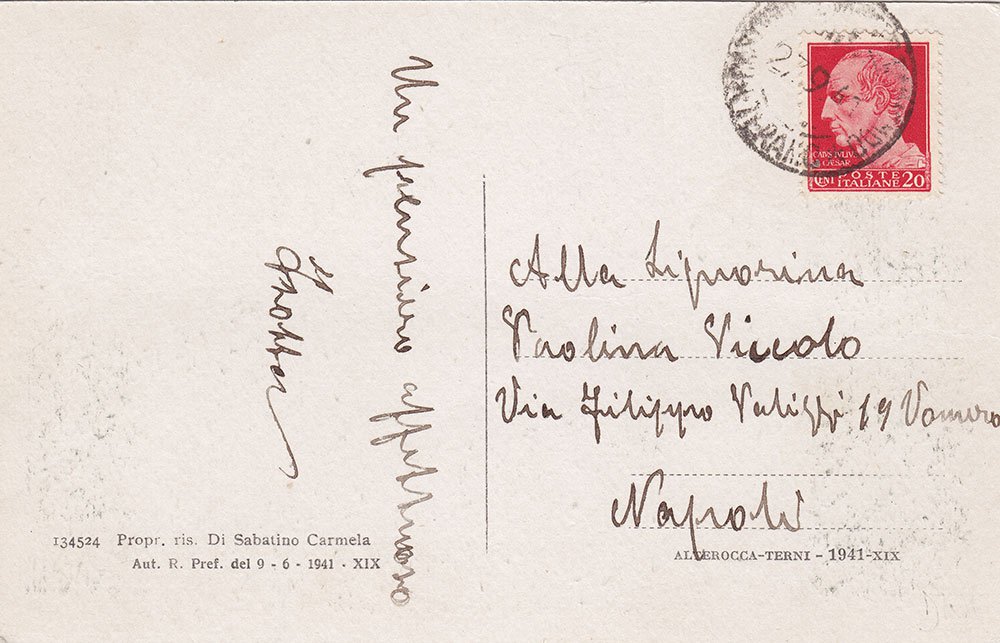 Un pensiero affettuoso
CAIVS IVLIVS
CAESAR
CENT POSTE
ITALIANE 20
27 9
TERAMO
Alla Signorina
Paolina Piccolo
Via Filippo 19 Vomero
Napoli
134524 Propr. ris. Di Sabatino Carmela
Aut. R. Pref. del 9 - 6 - 1941 - XIX
ALTEROCCA-TERNI - 1941-XIX